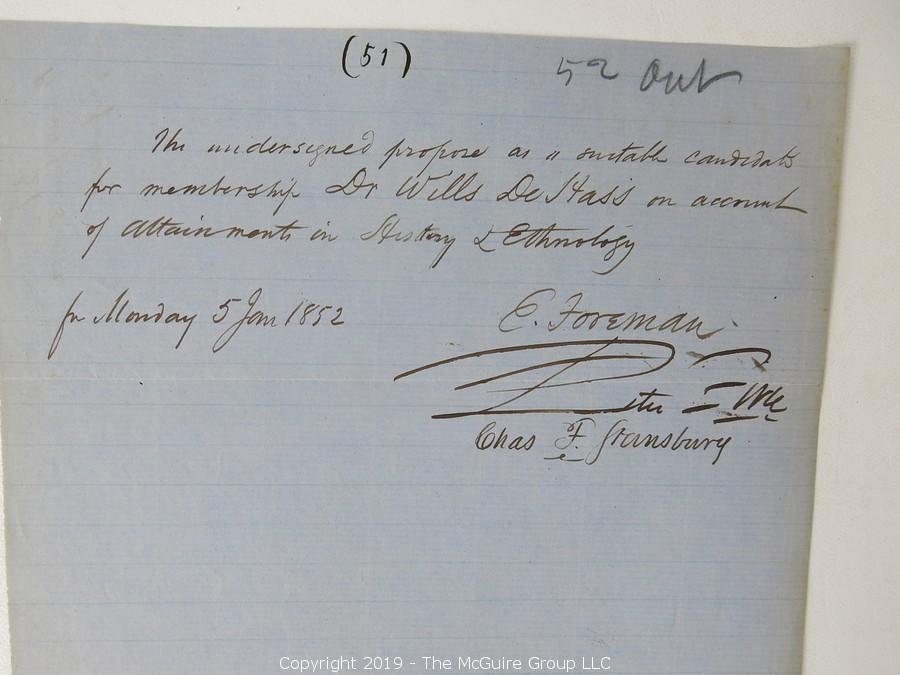 (51)
52 Out
The undersigned propose as a suitable candidate
for membership Dr Wills De Hass on account
of Attainments in History & Ethnology
for Monday 5 Jan 1852
E. Foreman
Peter Force
Chas F. Stansbury
Copyright 2019 - The McGuire Group LLC